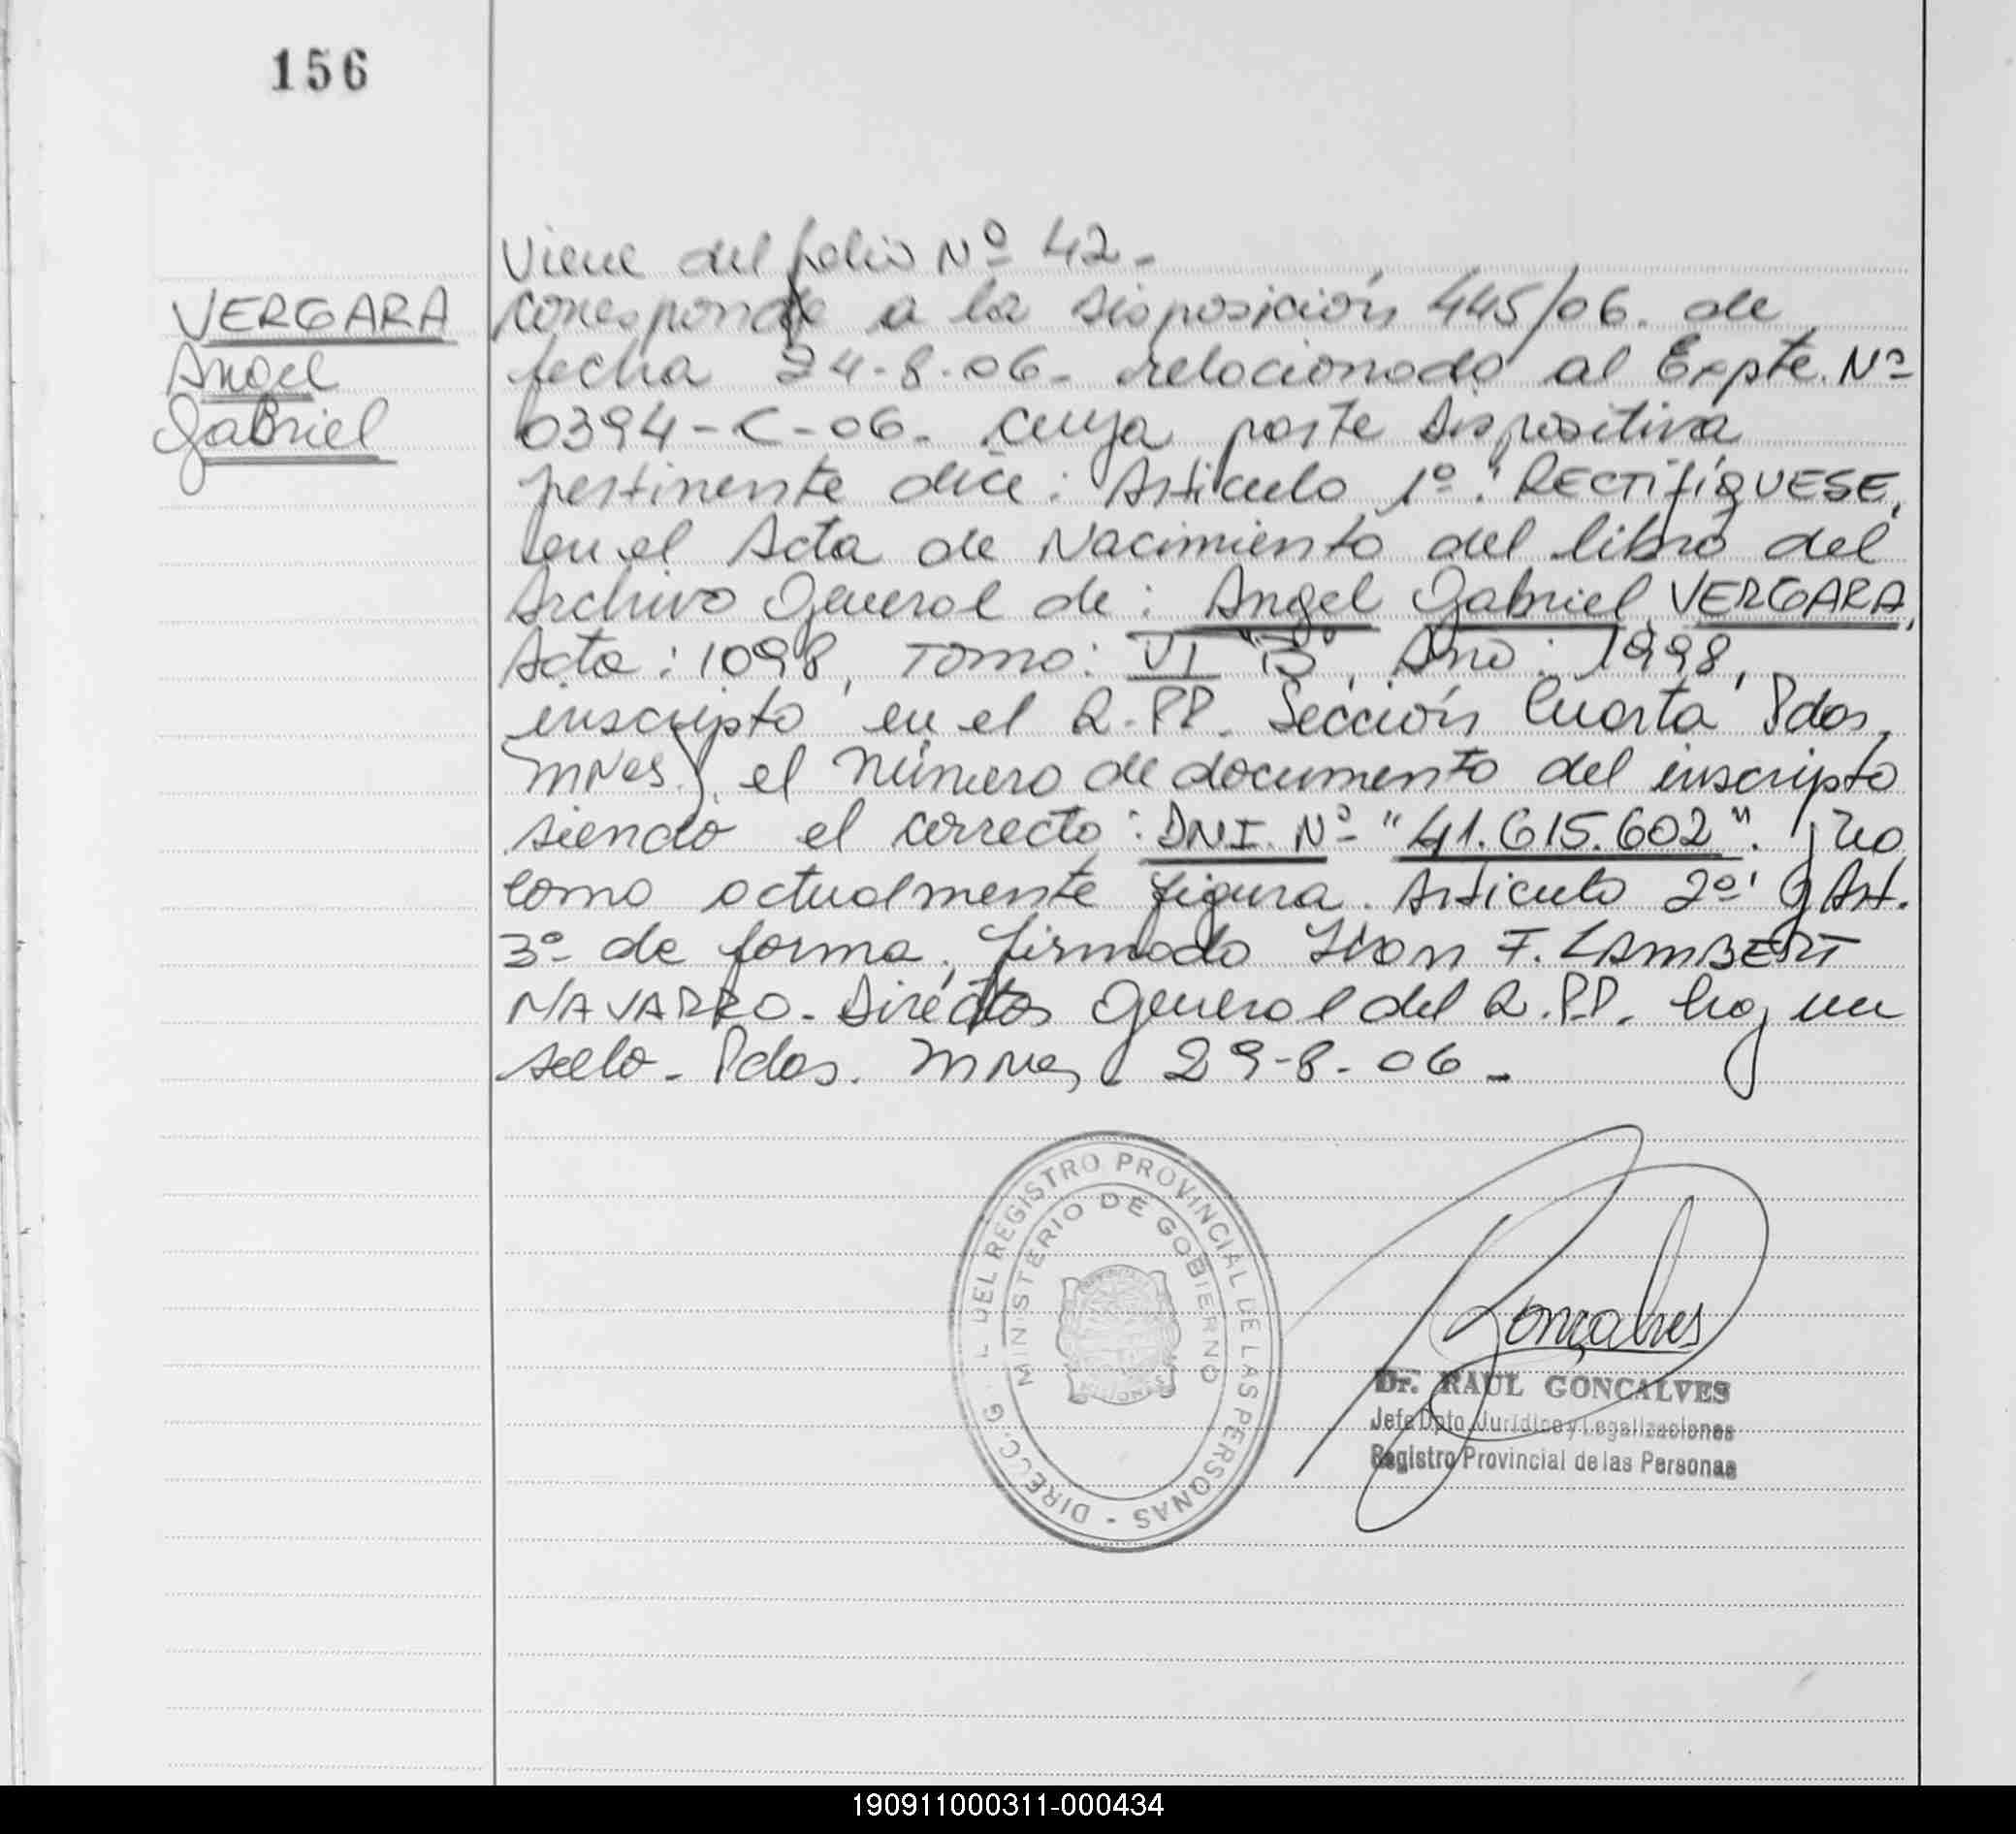 156
VERGARA
Angel
Gabriel
Viene del folio Nº 42-
Corresponde a la disposición 445/06. de
fecha 24-8-06- relacionado al Expte. Nº
0394-C-06. cuya parte dispositiva
pertinente dice: Artículo 1º: "RECTIFÍQUESE,
en el Acta de Nacimiento del libro del
Archivo General de: Angel Gabriel VERGARA,
Acta: 1098, Tomo: VI "B", Año: 1998,
inscripto en el R.PP. Sección Cuarta Pdas,
Mnes), el número de documento del inscripto
siendo el correcto: DNI. Nº "41.615.602". y no
como actualmente figura. Artículo 2º y Art.
3º de forma, firmado Ivan F. LAMBERT
NAVARRO- Director General del R.P.P. hay un
sello- Pdas. Mnes, 29-8-06-
DIRECC. G L DEL REGISTRO PROVINCIAL DE LAS PERSONAS -
MINISTERIO DE GOBIERNO
MISIONES
Gonçalves
Dr. RAUL GONCALVES
Jefe Dpto. Jurídico y Legalizaciones
Registro Provincial de las Personas
190911000311-000434